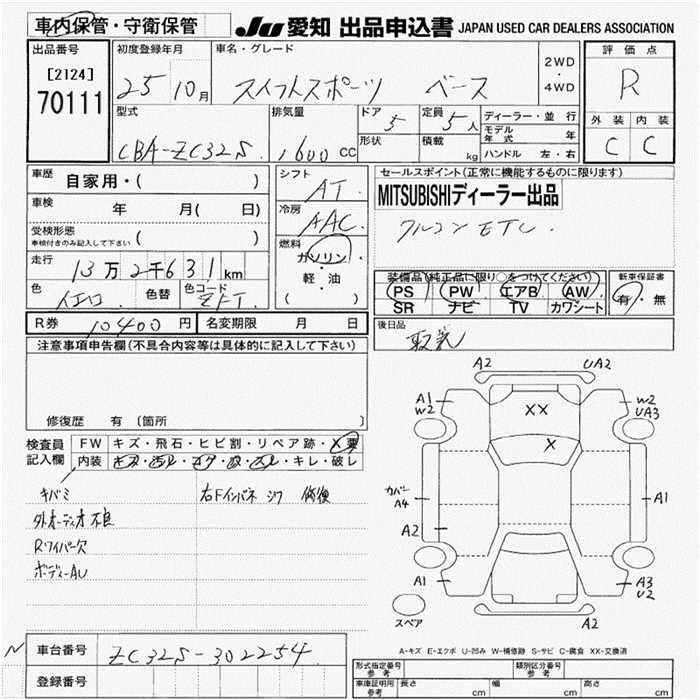 車内保管・守衛保管
JU 愛知 出品申込書 JAPAN USED CAR DEALERS ASSOCIATION
出品番号 初度登録年月 車名・グレード 評価点
[2124] 70111
25 10月 スイフトスポーツ ベース 2WD ・ 4WD R
型式 排気量 ドア 定員 ディーラー・並行 外装 内装
CBA-ZC32S 1600 CC 5 5人 モデル年式 年 C C
形状 積載 kg ハンドル 左・右
車歴 自家用・( ) シフト AT セールスポイント(正常に機能するものに限ります)
MITSUBISHIディーラー出品
車検 年 月( 日) 冷房 AAC
アルコン ETC
受検形態 車検付きのみ記入して下さい ( ) 燃料 ガソリン・軽・油 ( )
走行 13万2千631km 装備品(純正品に限り○をつけてください) 新車保証書
色 イエロ 色替 色コード ZFT PS PW エアB AW 有・無
SR ナビ TV カワシート
R券 10400円 名変期限 月 日 後日品
注意事項申告欄(不具合内容等は具体的に記入して下さい) 取説
修復歴 有 〔箇所 〕
検査員記入欄 FW キズ・飛石・ヒビ割・リペア跡・X要
内装 キズ・汚レ・コゲ・穴・スレ・キレ・破レ
キバミ 右Fインパネ シワ 修復
外オーディオ不良
Rワイパー欠
ボディーAU
A2 UA2
A1 W2 XX W2 UA3
X
カバー A4 A1
A2
A1 A3 U2
スペア A2
A-キズ E-エクボ U-凹み W-補修跡 S-サビ C-腐食 XX-交換済
N 車台番号 ZC32S-302254
登録番号
形式指定番号 参考 類別区分番号 参考
車庫証明用 参考 長さ cm 幅 cm 高さ cm